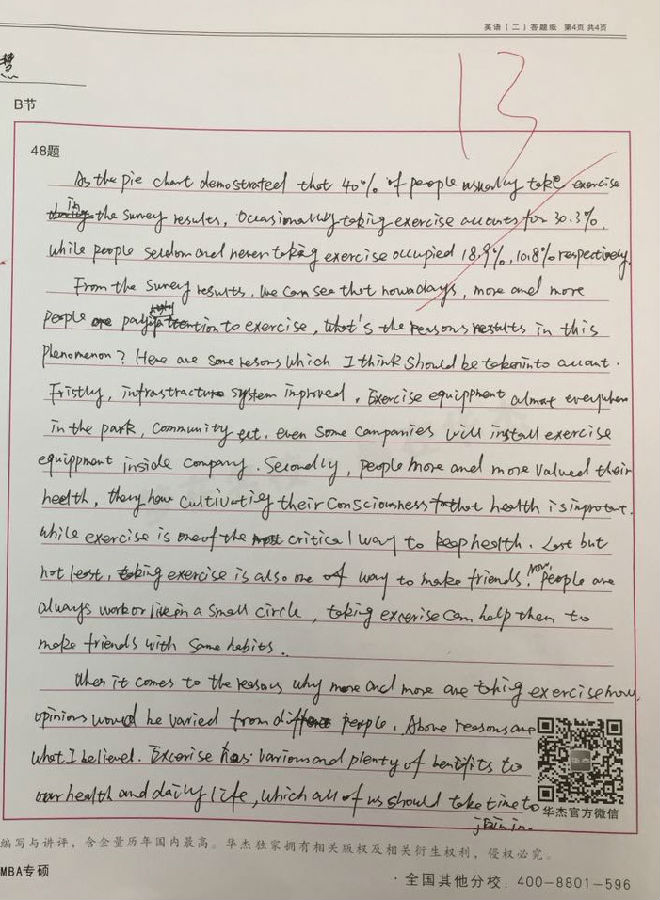 英语（二）答题纸 第4页 共4页
13
B节
48题
As the pie chart demostrated that 40% of people usually take exercise
in the survey results, Occasionally taking exercise accounts for 30.3%,
while people seldom and never taking exercise occupied 18.9%, 10.8% respectively.
From the survey results, we can see that nowadays, more and more
people pay attention to exercise, What's the reasons results in this
phenomenon? Here are some resons which I think should be taken into account.
Fristly, infrastructure system improved, Exercise equippment almost everywhere
in the park, community ect, even some companies will install exercise
equippment inside company. Secondly, people more and more valued their
health, they have cultivating their consciousness that health is improtant.
while exercise is one of the critical way to keep health. Last but
not least, taking exercise is also one of way to make friends! Now, People are
always work or live in a small circle, taking excerise can help them to
make friends with same habits.
When it comes to the reasons why more and more are taking exercise now,
opinions would be varied from people. Above reasons are
what I believed. Excerise has various and plenty of benifits to
our health and daily life, which all of us should take time to
join in.
华杰官方微信
编写与讲评，含金量历年国内最高。华杰独家拥有相关版权及相关衍生权利，侵权必究。
MBA专硕
·全国其他分校：400-8801-596